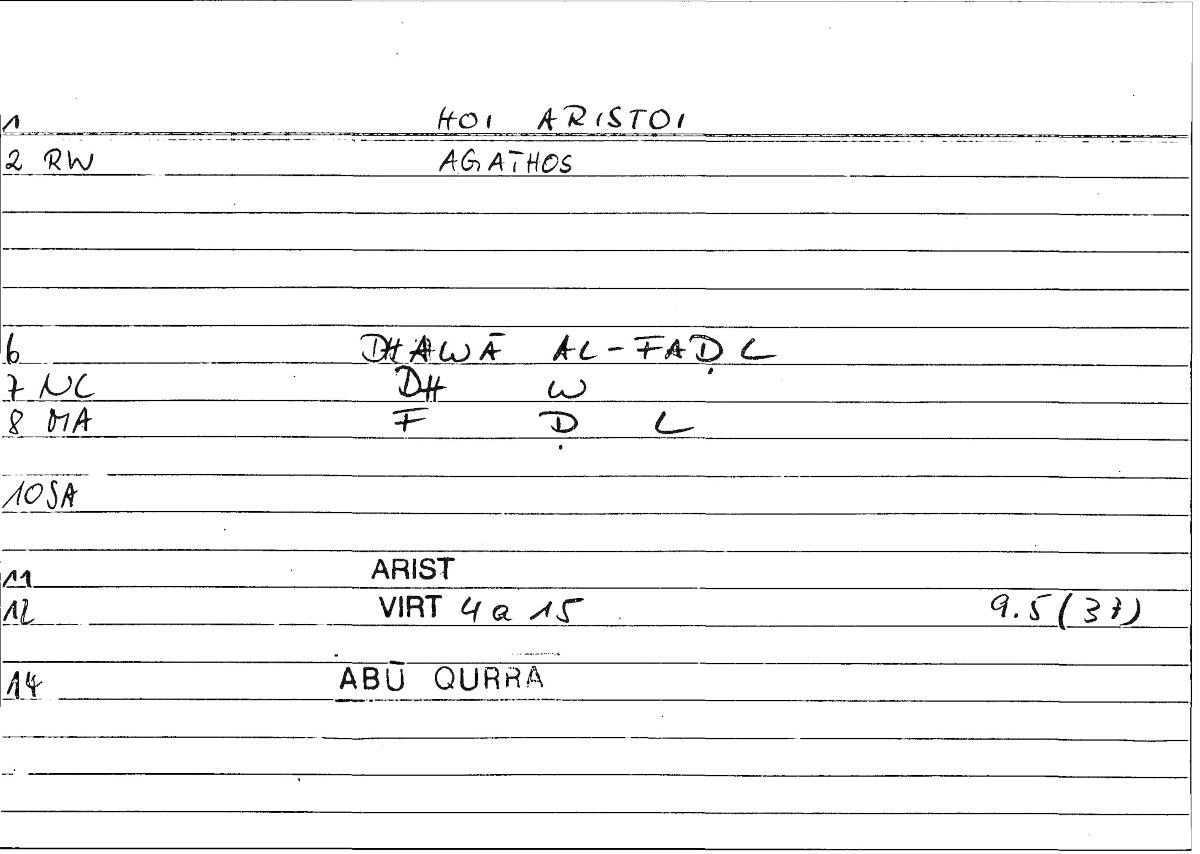 1 HOI ARISTOI
2 RW AGATHOS
6 DHAWĀ AL-FAḌL
7 NC DH W
8 MA F Ḍ L
10 SA
11 ARIST
12 VIRT 4 a 15 9.5 (37)
14 ABŪ QURRA